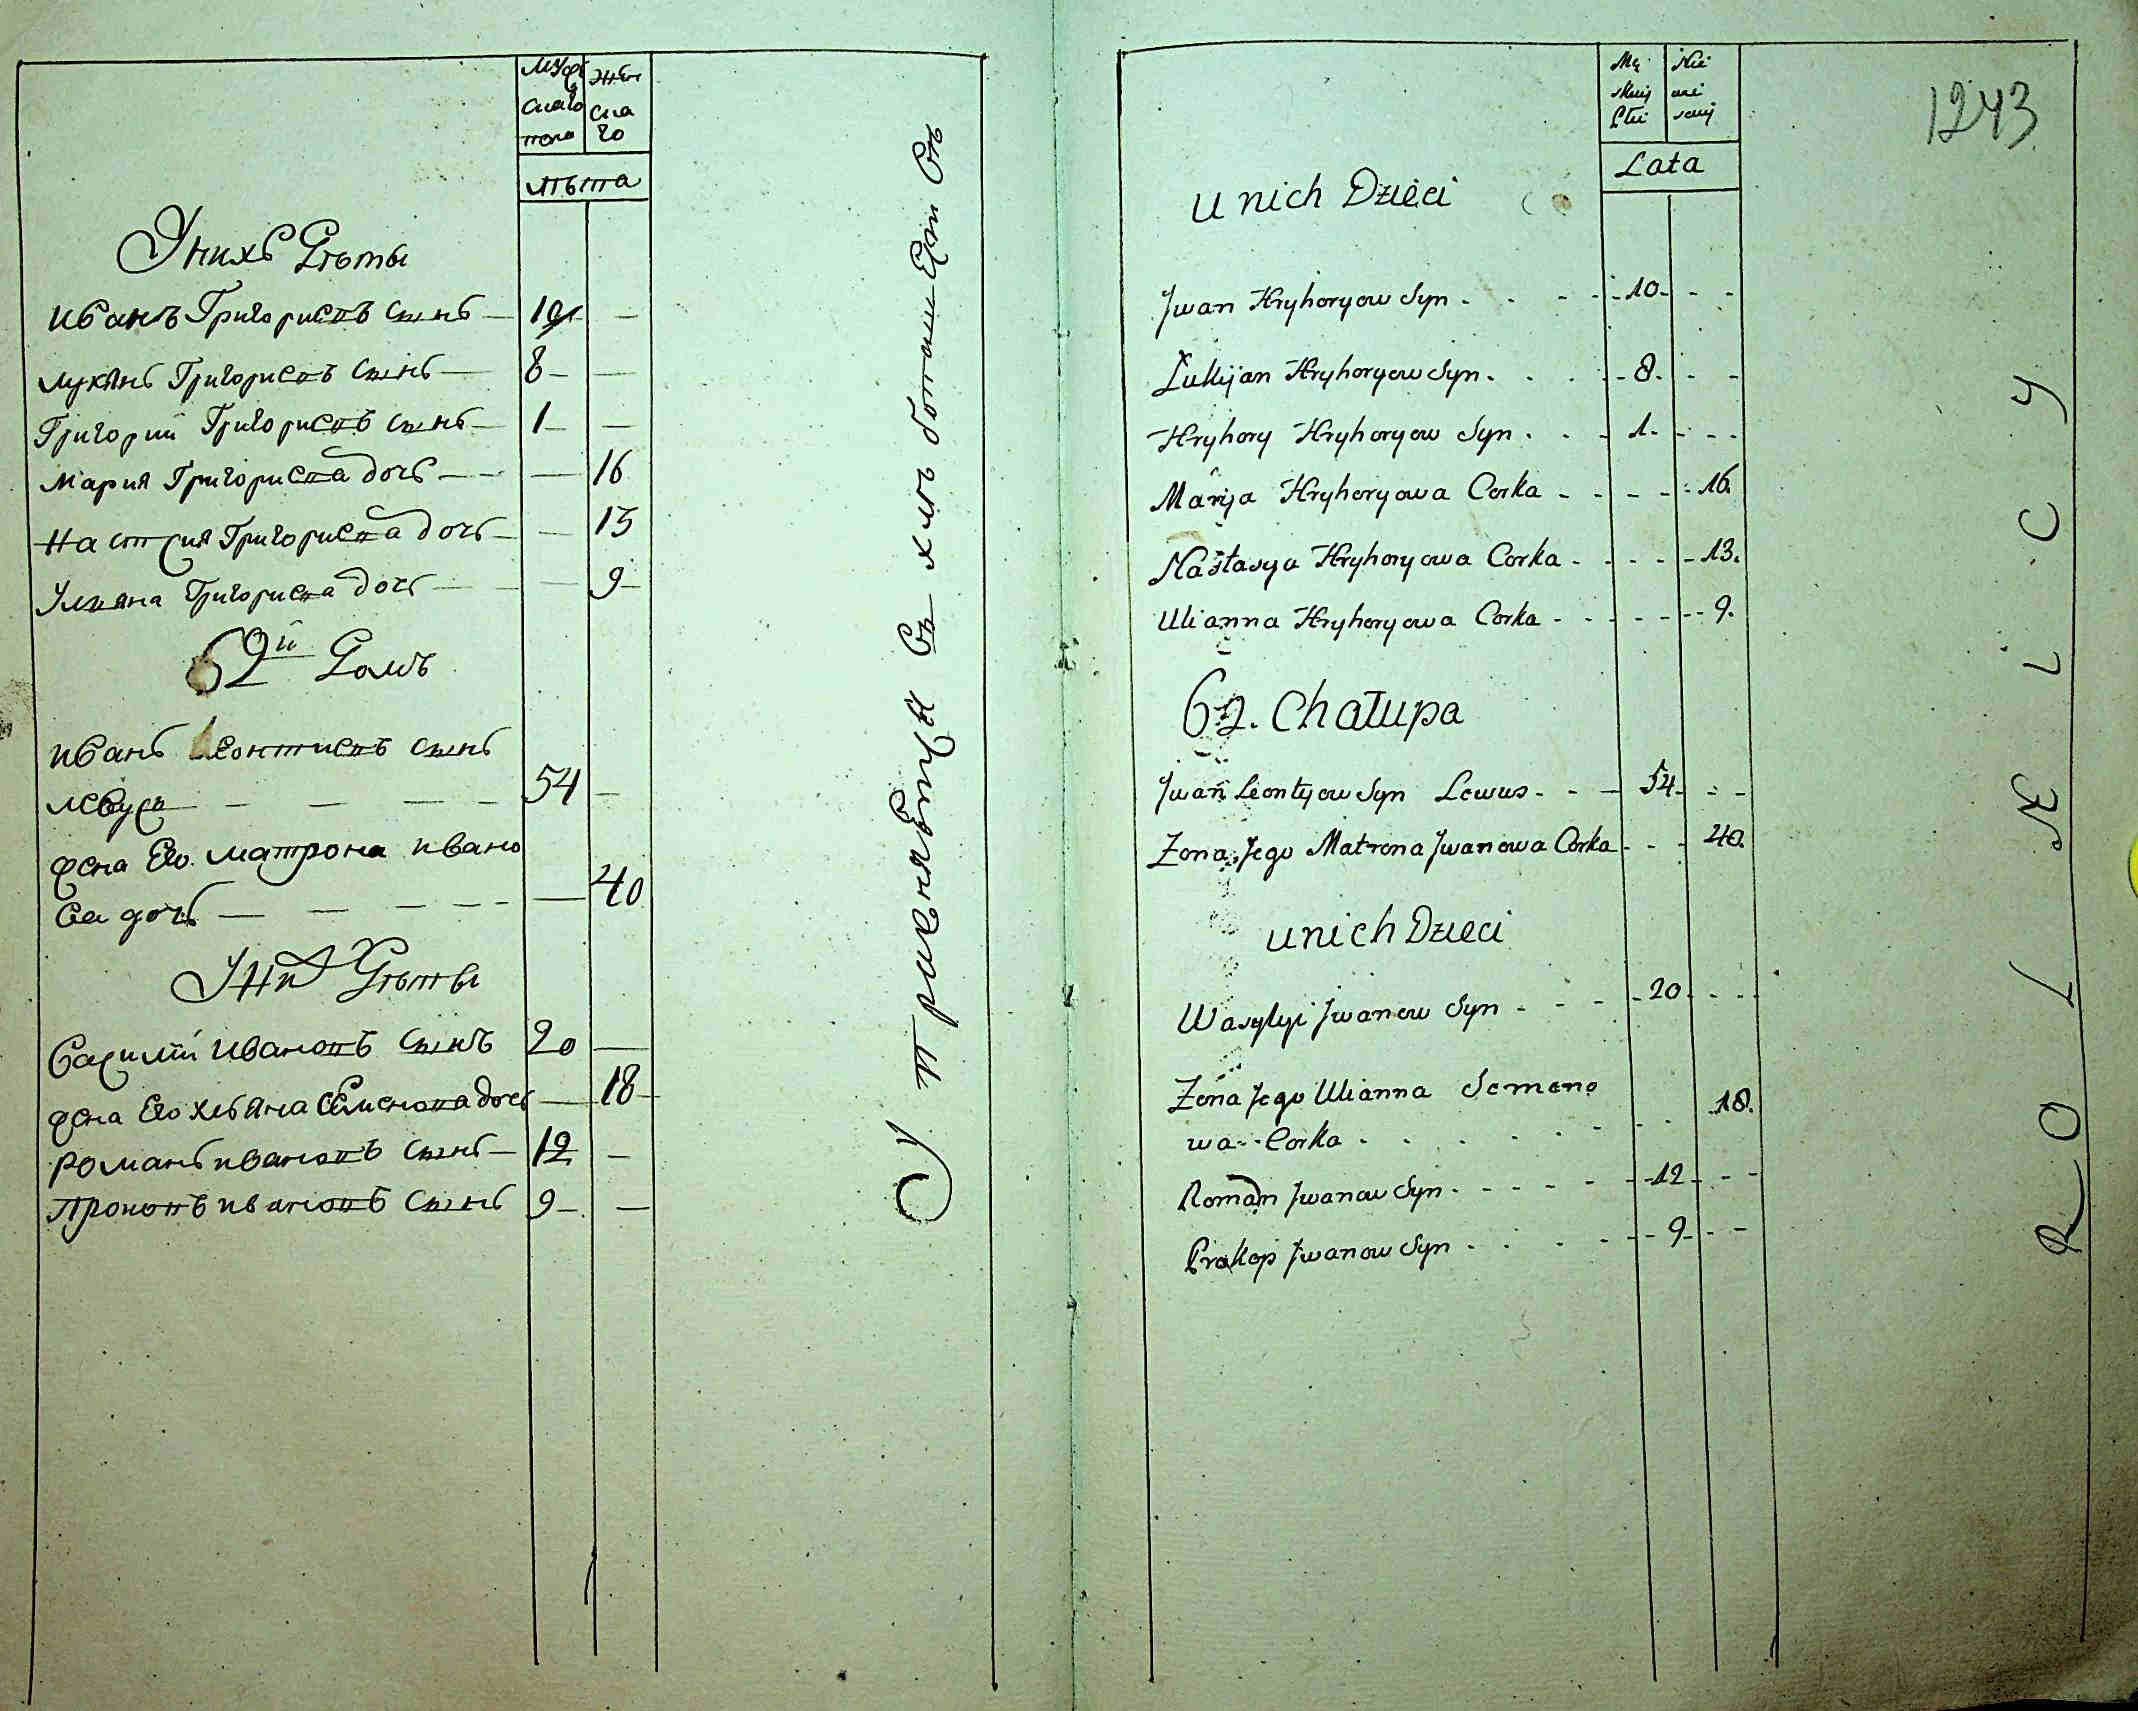 Мужскаго пола Женскаго
лѣта
У нихъ Дѣти
Иванъ Григориевъ сынъ — 10 —
Лукянъ Григориевъ сынъ — 8 — —
Григорий Григориевъ сынъ — 1 — —
Мария Григориева дочь — — — 16
Настасия Григориева дочь — — 13
Улияна Григориева дочь — — 9 —
62й Домъ
Иванъ Леонтиевъ сынъ
Левусъ — — — — — 54 —
жена Его Матрона Ивано
ва дочь — — — — — — 40
У них Дѣти
Василий Ивановъ сынъ 20 —
жена Его Улияна Семенова дочь — 18 —
Романъ Ивановъ сынъ — 12 —
Прокопъ Ивановъ сынъ 9 — —
1243
Męskiej Płci Niewieściej
Lata
u nich Dzieci
Jwan Hryhoryow Syn - - - - 10 - - -
Łukijan Hryhoryow Syn - - - - 8 - - -
Hryhory Hryhoryow Syn - - - 1 - - - -
Marija Hryhoryowa Corka - - - - - 16.
Nastasya Hryhoryowa Corka - - - - - 13.
Ulianna Hryhoryowa Corka - - - - - - 9.
62. Chałupa
Jwan Leontyow Syn Lewus - - - 54 - - -
Zona Jego Matrona Jwanowa Corka - - - 40.
u nich Dzieci
Wasylyi Jwanow Syn - - - - 20 - - - -
Zona Jego Ulianna Semeno
wa - - Corka - - - - - - - - 18.
Roman Jwanow Syn - - - - - - 12 - - -
Prokop Jwanow Syn - - - - - - 9 - - -